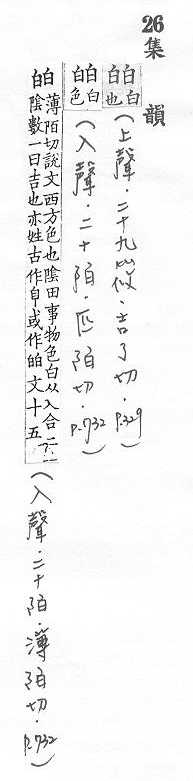 26 集韻
白 白也
(上聲．二十九筱．吉了切．p.329)
白 白色
(入聲．二十陌．匹陌切．p.732)
白 薄陌切說文西方色也陰用事物色白从入合二二
陰數一曰吉也亦姓古作或作文十五
(入聲．二十陌．薄陌切．p.732)